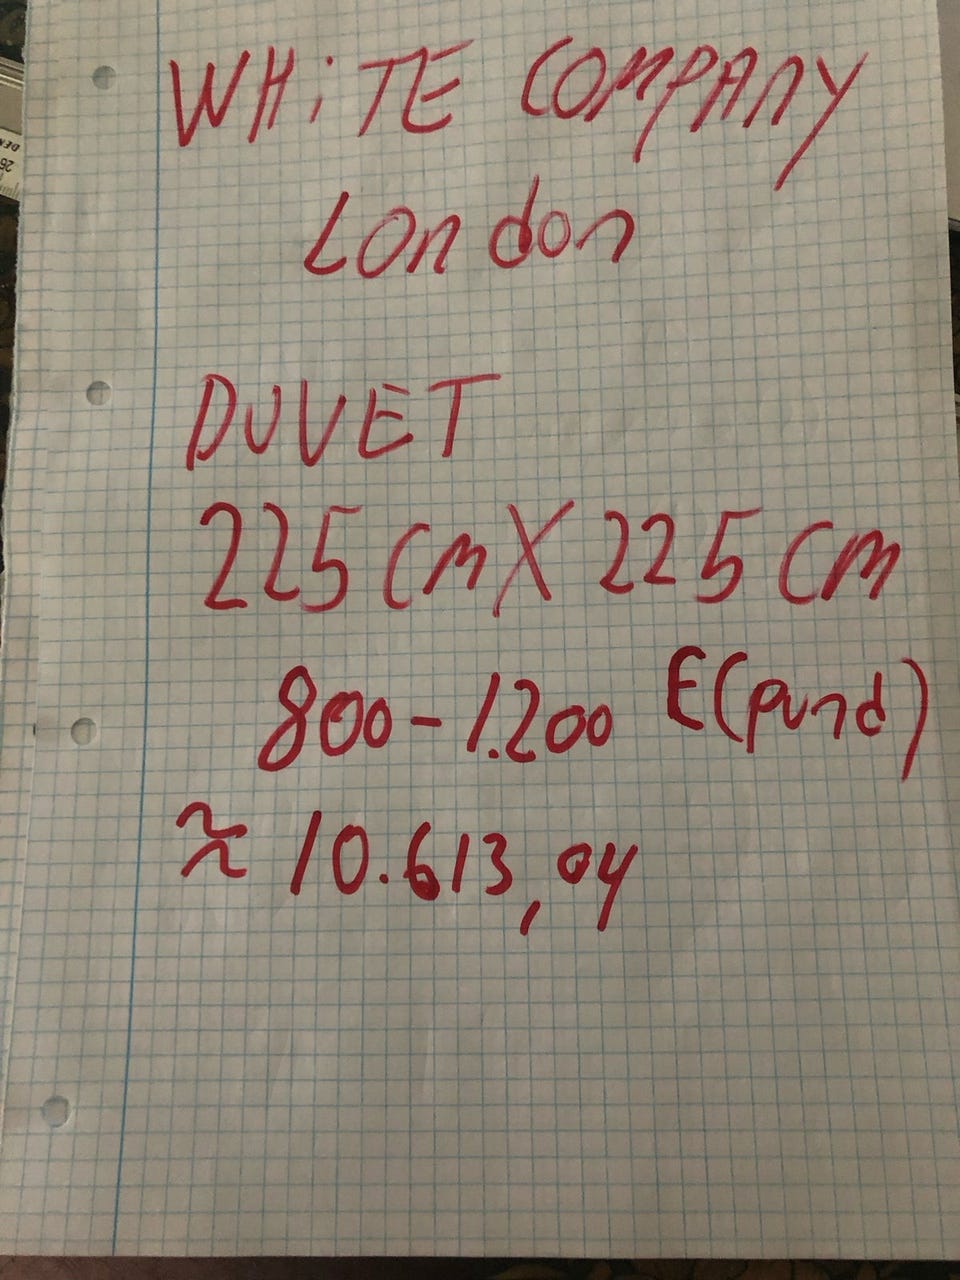 WHiTE COMPAnY
London
DUVET
225 cm X 225 cm
800 - 1.200 £ (pund)
≈ 10.613,04